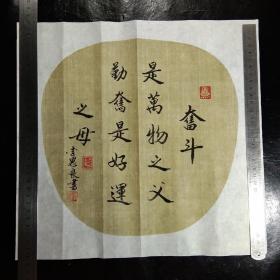 奮斗
是萬物之父
勤奮是好運
之母
李思泉書